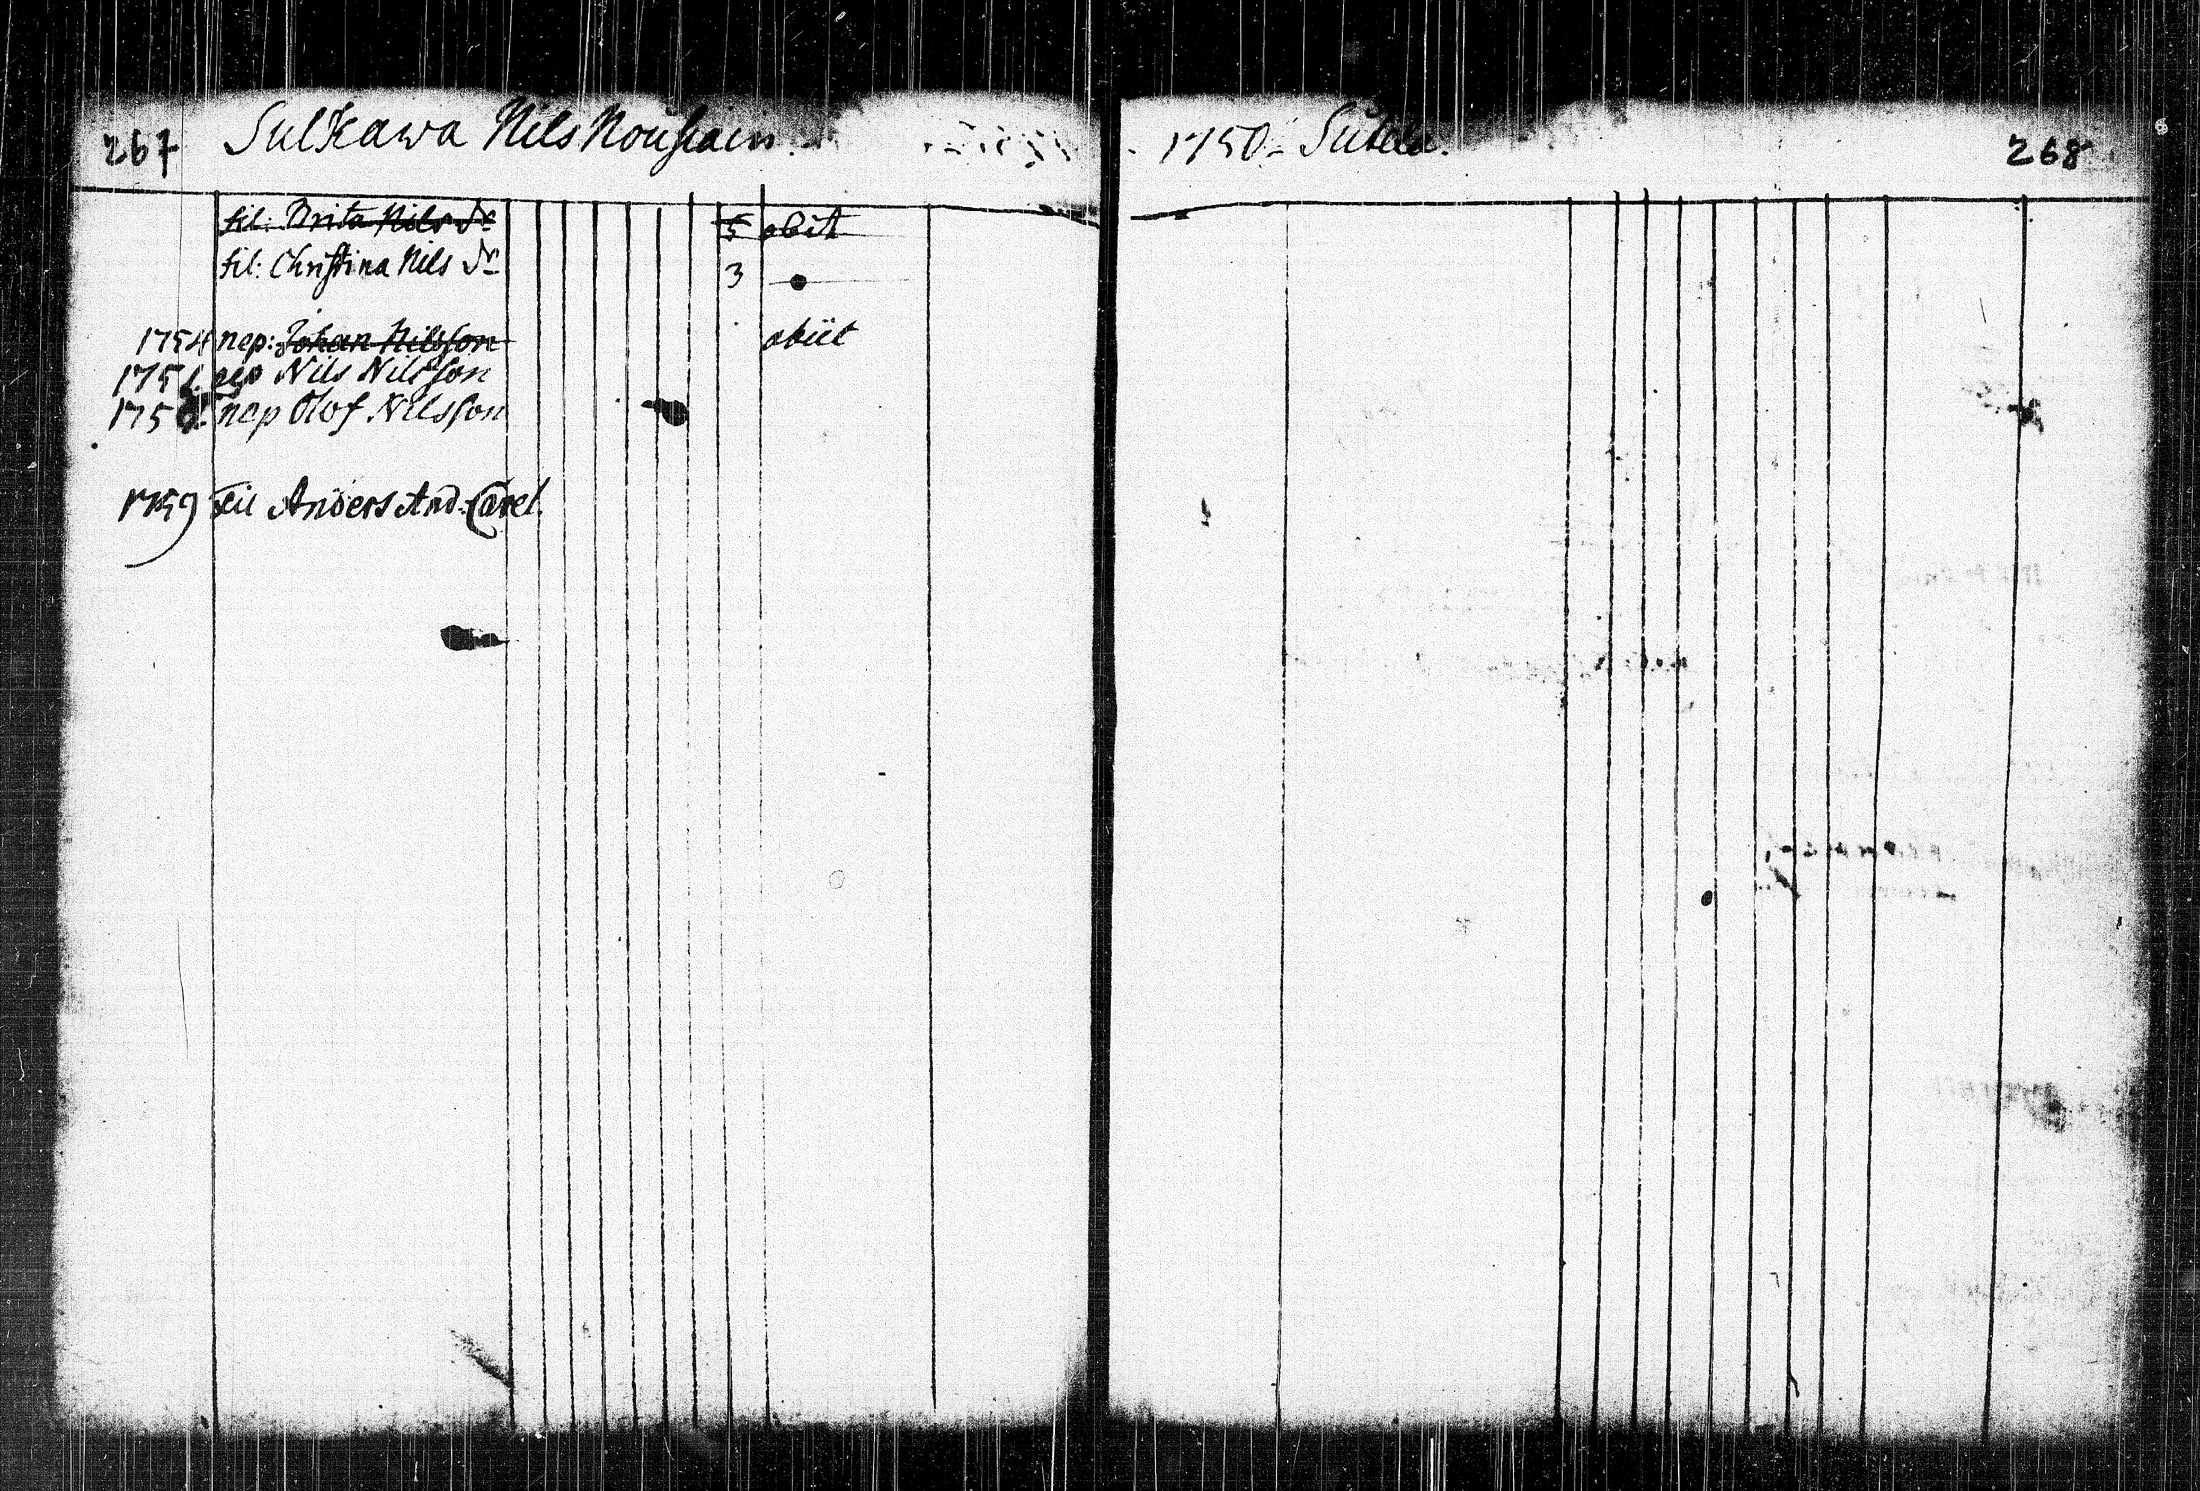 267 Sulkawa Nils Nousiain.
fil: Brita Nils Dr 5 obiit
fil: Christina Nils Dr 3
1754 nep: Johan Nilsson obiit
nep Nils Nilsson
nep Olof Nilsson
1759 Anders And. Carel.
1750 268